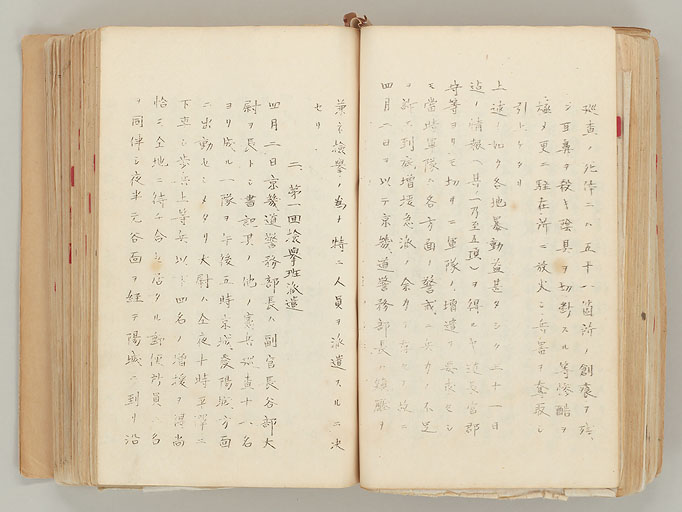 巡査ノ死体ニハ五十八箇所ノ創痍ヲ残
シ耳鼻ヲ殺キ陰具ヲ切断スル等惨酷ヲ
極メ更ニ駐在所ニ放火シ兵器ヲ奪取シ
引上ケタリ
上述ノ如ク各地暴動益甚タシク二十一日
迠ノ情報(其一乃至五項)ヲ得ルヤ道長官郡
守等ヨリモ切リニ軍隊ノ増遣ヲ要求セシ
モ当時軍隊ハ各方面ノ警戒ニ兵力ノ不足
ヲ訴ヘ到底増援急派ノ余力ナ
四月二日ヲ以テ京畿道警務部長ハ鎮圧ヲ
兼ネ検挙ノ為メ特ニ人員ヲ派遣スルニ決
セリ
二、第一回検挙班派遣
四月二日京畿道警務部長ハ副官長谷部大
尉ヲ長トシ書記其ノ他ノ憲兵巡査十八名
ヨリ成ル一隊ヲ午後五時京城発陽城方面
ニ出動セシメタリ大尉ハ仝夜十時平沢ニ
下車シ歩兵上等兵以下四名ノ増援ヲ得尚
恰モ仝地ニ待チ合セ居タル 員 名
ヲ同伴シ夜半元谷面ヲ経テ陽城ニ到リ沿